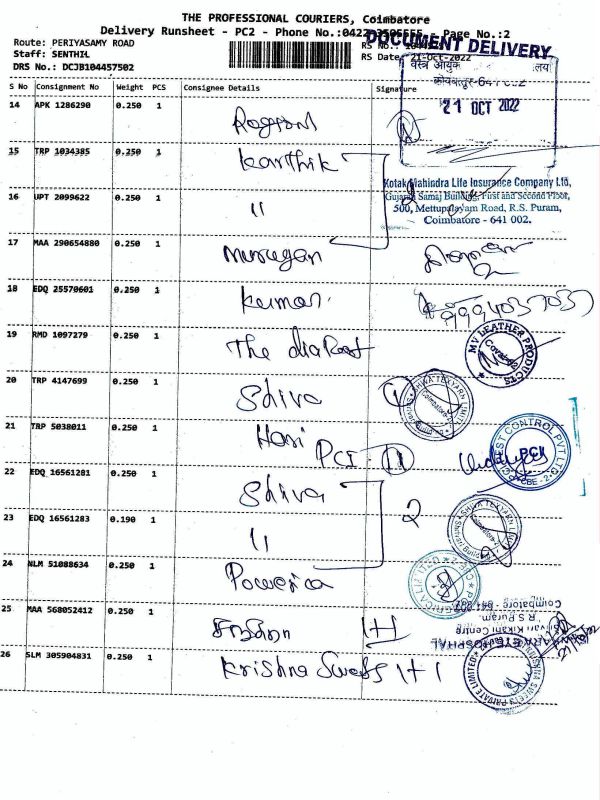 THE PROFESSIONAL COURIERS, Coimbatore
Delivery Runsheet - PC2 - Phone No.:0422 Page No.:2
Route: PERIYASAMY ROAD
Staff: SENTHIL
DRS No.: DCJB104457502
RS No.:
RS Date: 21-Oct-2022
DOCUMENT DELIVERY
वस्त्र आयुक्त
21 OCT 2022
S No Consignment No Weight PCS Consignee Details Signature
14 APK 1286290 0.250 1
15 TRP 1034385 0.250 1 Karthik
16 UPT 2099622 0.250 1 "
Kotak Mahindra Life Insurance Company Ltd,
Gujarati Samaj Building, First and Second Floor,
500, Mettupalayam Road, R.S. Puram,
Coimbatore - 641 002.
17 MAA 290654880 0.250 1 Murugan
18 EDQ 25570601 0.250 1 Kumar
9994037037
19 RMD 1097279 0.250 1 The
MV LEATHER PRODUCTS
20 TRP 4147699 0.250 1 Shiva
21 TRP 5038011 0.250 1 Hari
PCI - 11
PEST CONTROL PVT LTD
PCI
CBE - 2
22 EDQ 16561281 0.250 1 Shiva
2
23 EDQ 16561283 0.190 1 "
24 NLM 51088634 0.250 1 Powerica
POWERICA LIMITED
Coimbatore - 641 002
R S Puram,
Kikani Centre
EYE HOSPITAL
25 MAA 568052412 0.250 1 1+1
26 SLM 305904831 0.250 1 Krishna Sweets 1+1
KRISHNA SWEETS PRIVATE LIMITED